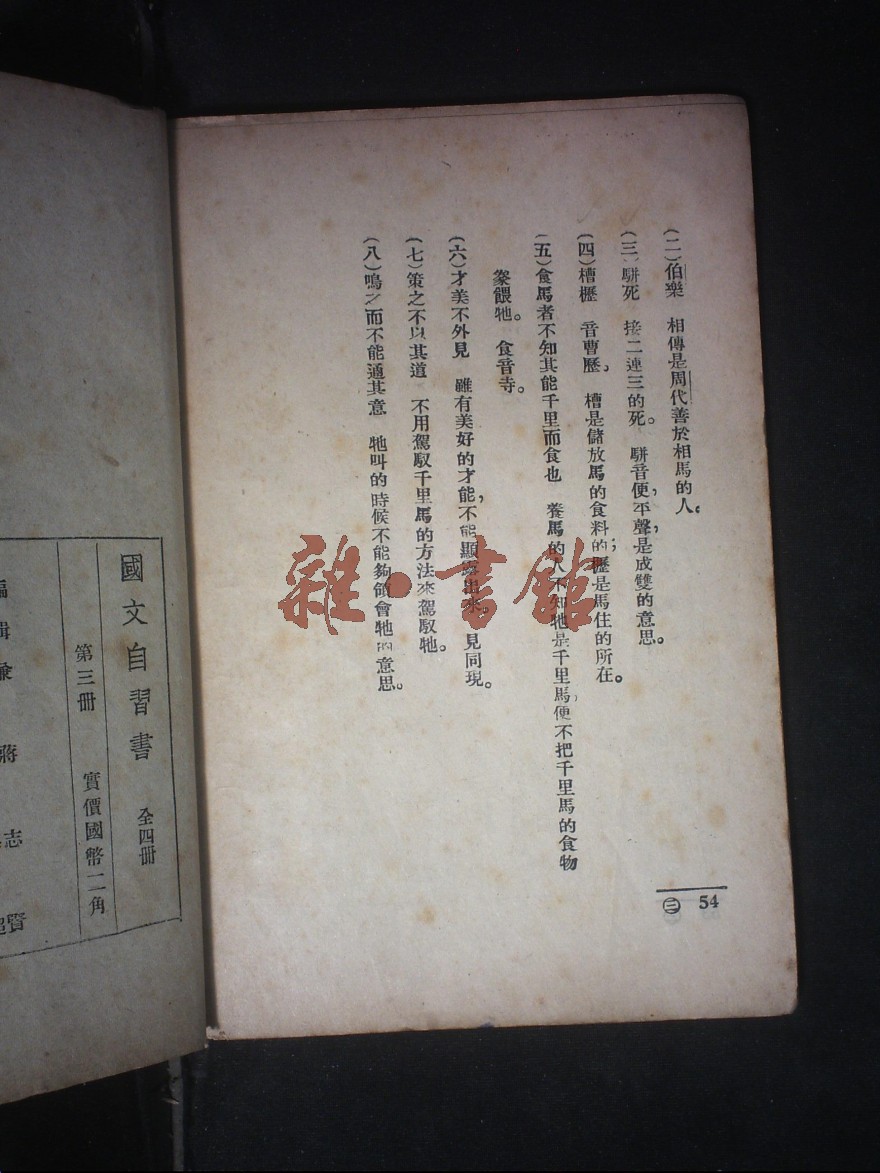 (二)伯樂　相傳是周代善於相馬的人。
(三)駢死　接二連三的死。駢音便,平聲,是成雙的意思。
(四)槽櫪　音曹歷。槽是儲放馬的食料的;櫪是馬住的所在。
(五)食馬者不知其能千里而食也　養馬的人不知牠是千里馬,便不把千里馬的食物
豢餵牠。食音寺。
(六)才美不外見　雖有美好的才能,不能顯露出來。見同現。
(七)策之不以其道　不用駕馭千里馬的方法來駕馭牠。
(八)鳴之而不能通其意　牠叫的時候不能夠領會牠的意思。
54
㊂
國文自習書　全四冊
第三冊　實價國幣二角
編輯兼
蔣
志
賢
雜·書館